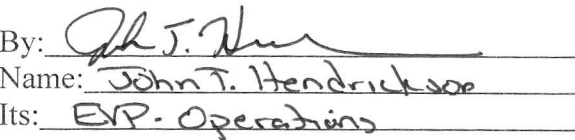 By: John T. Hendrickson
Name: John T. Hendrickson
Its: EVP - Operations